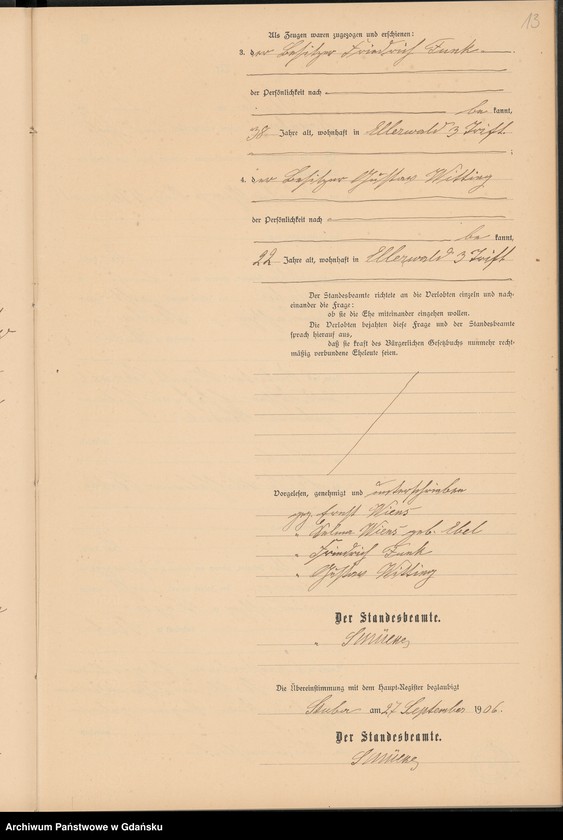 13
Als Zeugen waren zugezogen und erschienen:
3. der Besitzer Friedrich Funk
der Persönlichkeit nach
be kannt,
38 Jahre alt, wohnhaft in Ellerwald 3 Trift
;
4. der Besitzer Gustav Witting
der Persönlichkeit nach
be kannt,
22 Jahre alt, wohnhaft in Ellerwald 3 Trift
Der Standesbeamte richtete an die Verlobten einzeln und nach-
einander die Frage:
ob sie die Ehe miteinander eingehen wollen.
Die Verlobten bejahten diese Frage und der Standesbeamte
sprach hierauf aus,
daß sie kraft des Bürgerlichen Gesetzbuchs nunmehr recht-
mäßig verbundene Eheleute seien.
Vorgelesen, genehmigt und unterschrieben
gez. Ernst Wiens
" Selma Wiens geb. Ebel
" Friedrich Funk
" Gustav Witting
Der Standesbeamte.
"
Die Übereinstimmung mit dem Haupt-Register beglaubigt
Stuba am 27 September 1906.
Der Standesbeamte.
Archiwum Państwowe w Gdańsku